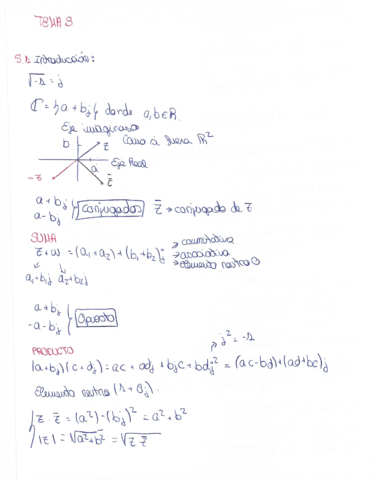 TEMA 3
3.1 Introducción:
√-1 = j
ℂ = {a + bj} donde a, b ∈ ℝ.
Eje imaginario
Como si fuera ℝ²
b z
a Eje Real
-z z̅
a + bj
a - bj } conjugados z̅ → conjugado de z
SUMA
z + w = (a₁ + a₂) + (b₁ + b₂)j → conmutativa
→ asociativa
→ elemento neutro 0
a₁+b₁j a₂+b₂j
a + bj
-a - bj } Opuesto
PRODUCTO
j² = -1
(a+bj)(c+dj) = ac + adj + bjc + bdj² = (ac-bd)+(ad+bc)j
Elemento neutro (1 + 0j).
z · z̅ = (a²) - (bj)² = a² + b²
|z| = √a²+b² = √z z̅